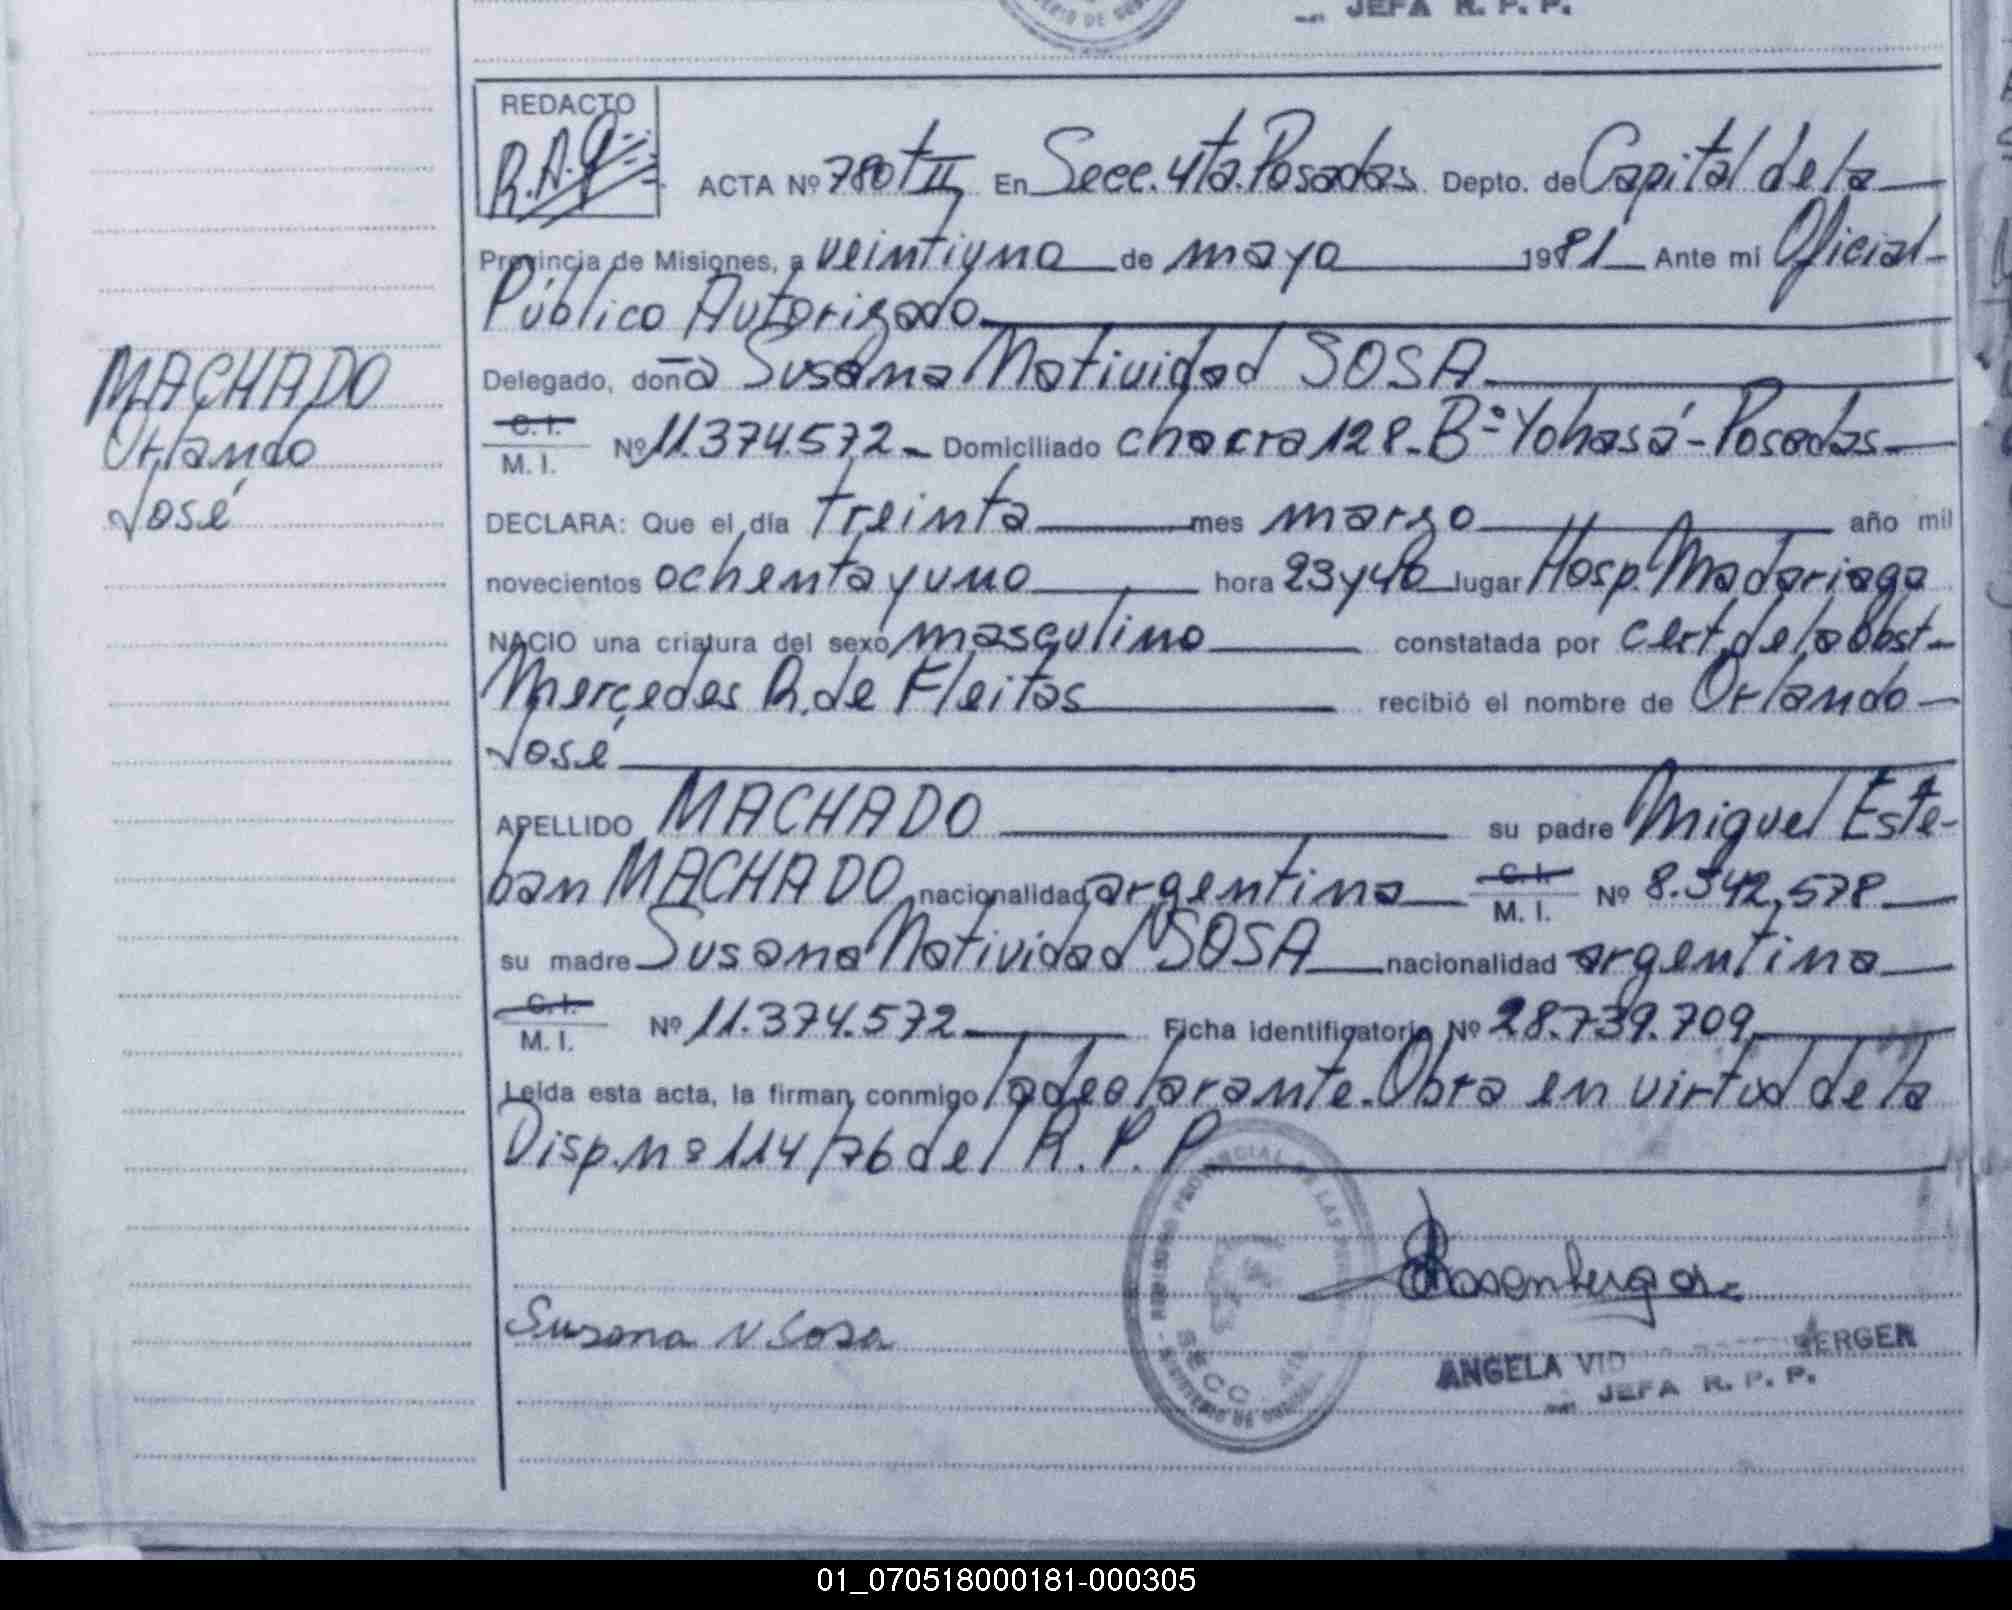 JEFA R. P. P.
REDACTO
ACTA Nº 780 tII En Secc. 4ta. Posadas Depto. de Capital de la
Provincia de Misiones, a veintiuno de mayo 1981 Ante mi Oficial
Público Autorizado
Delegado, doña Susana Natividad SOSA
C. I.
M. I. Nº 11.374.572 Domiciliado chacra 128 - Bº Yohasá - Posadas
MACHADO
Orlando
José
DECLARA: Que el día treinta mes marzo año mil
novecientos ochenta y uno hora 23 y 40 lugar Hosp. Madariaga
NACIO una criatura del sexo masculino constatada por cert. de la Obst-
Mercedes R. de Fleitas recibió el nombre de Orlando
José
APELLIDO MACHADO su padre Miguel Este-
ban MACHADO nacionalidad argentina C. I. M. I. Nº 8.542.578
su madre Susana Natividad SOSA nacionalidad argentina
C. I.
M. I. Nº 11.374.572 Ficha identificatoria Nº 28.739.709
Leída esta acta, la firman conmigo la declarante. Obra en virtud de la
Disp. nº 114/76 del R. P. P.
Susana N Sosa
ANGELA VID
JEFA R. P. P.
01_070518000181-000305